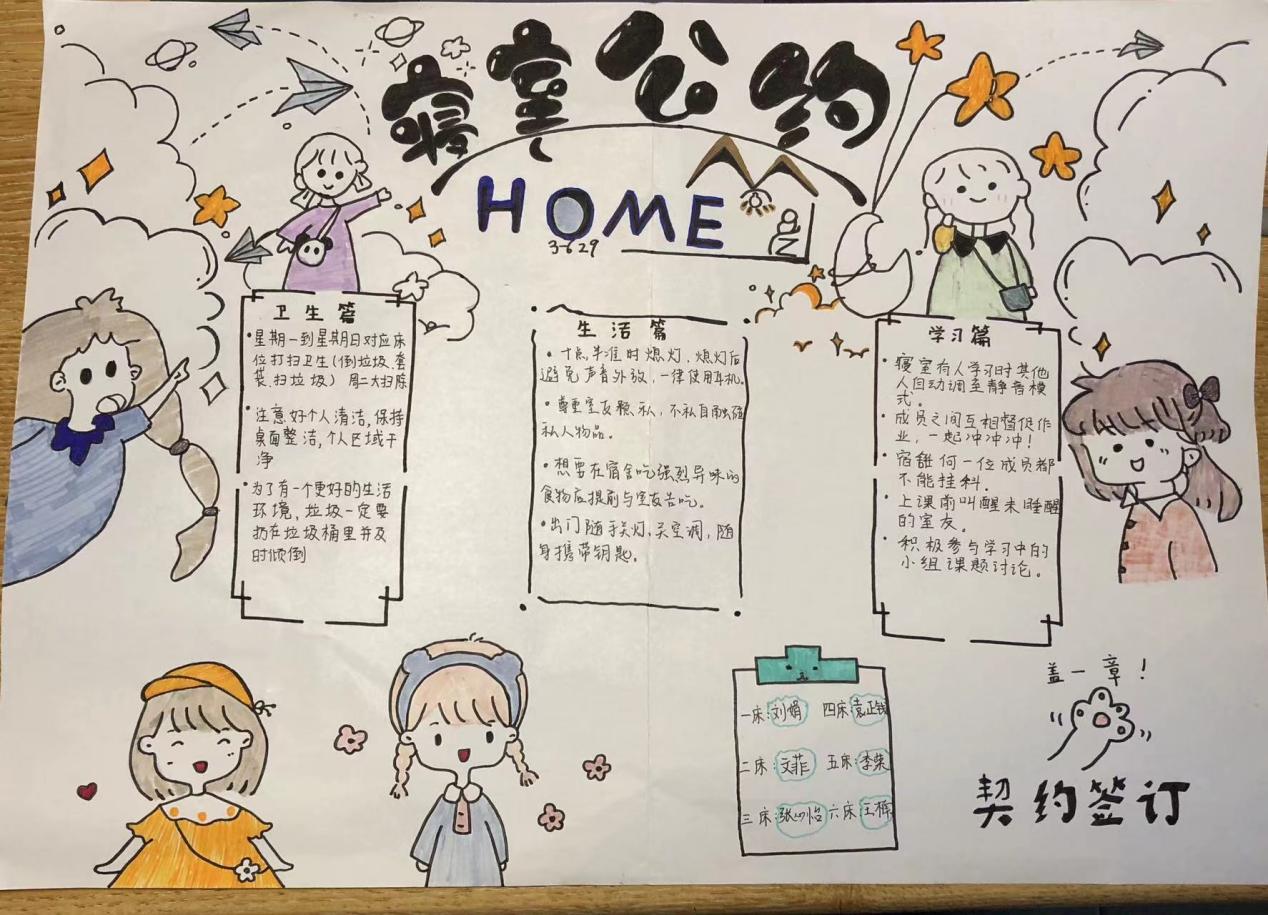 寝室公约
HOME
3-629
卫生篇
·星期一到星期日对应床
位打扫卫生(倒垃圾、套
袋、扫垃圾) 周二大扫除
·注意好个人清洁,保持
桌面整洁,个人区域干
净
·为了有一个更好的生活
环境,垃圾一定要
扔在垃圾桶里并及
时倾倒
生活篇
·十点半准时熄灯,熄灯后
避免声音外放,一律使用耳机。
·尊重室友隐私,不私自触碰
私人物品。
·想要在宿舍吃强烈异味的
食物应提前与室友告吃。
·出门随手关灯、关空调,随
身携带钥匙。
学习篇
·寝室有人学习时其他
人自动调至静音模
式。
·成员之间互相督促作
业,一起冲冲冲!
·宿舍任何一位成员都
不能挂科.
·上课前叫醒未睡醒
的室友。
·积极参与学习中的
小组课题讨论。
一床:刘娟 四床:袁正钱
二床:文菲 五床:李荣
三床:张心怡 六床:王梅
盖一章!
契约签订